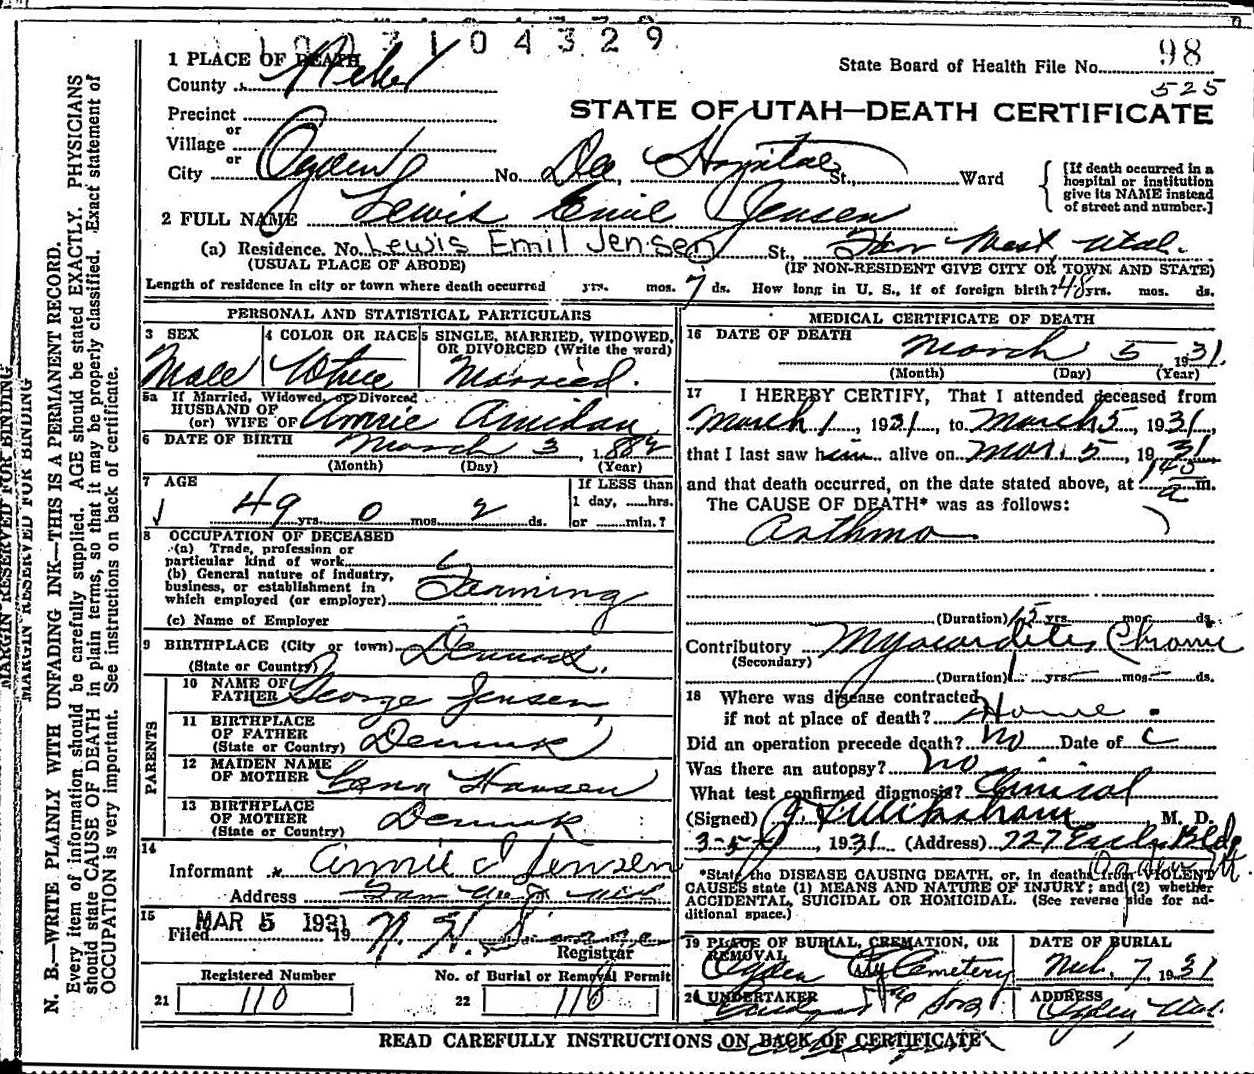 1 0 0 3 1 0 4 3 2 9
1 PLACE OF DEATH
County Weber
State Board of Health File No. 98
525
STATE OF UTAH—DEATH CERTIFICATE
Precinct
or
Village
or
City Ogden No. Dee Hospital St., Ward
[If death occurred in a hospital or institution give its NAME instead of street and number.]
2 FULL NAME Lewis Emil Jensen
(a) Residence. No. Lewis Emil Jensen St., Far West Utah.
(USUAL PLACE OF ABODE) (IF NON-RESIDENT GIVE CITY OR TOWN AND STATE)
Length of residence in city or town where death occurred yrs. mos. 7 ds. How long in U. S., if of foreign birth? 48 yrs. mos. ds.
PERSONAL AND STATISTICAL PARTICULARS
3 SEX
Male
4 COLOR OR RACE
White
5 SINGLE, MARRIED, WIDOWED, OR DIVORCED (Write the word)
Married.
5a If Married, Widowed, or Divorced
HUSBAND OF
(or) WIFE OF Annie Amidan
6 DATE OF BIRTH March 3, 1882
(Month) (Day) (Year)
7 AGE
49 yrs. 0 mos. 2 ds.
If LESS than
1 day, hrs.
or min.?
8 OCCUPATION OF DECEASED
(a) Trade, profession or
particular kind of work
(b) General nature of industry,
business, or establishment in
which employed (or employer) Farming
(c) Name of Employer
9 BIRTHPLACE (City or town) Denmark.
(State or Country)
PARENTS
10 NAME OF
FATHER George Jensen
11 BIRTHPLACE
OF FATHER
(State or Country) Denmark
12 MAIDEN NAME
OF MOTHER Lena Hansen
13 BIRTHPLACE
OF MOTHER
(State or Country) Denmark
14
Informant Annie I Jensen
Address Far West Utah
15
MAR 5 1931
Filed 19
Registrar
Registered Number
21 110
No. of Burial or Removal Permit
22 110
MEDICAL CERTIFICATE OF DEATH
16 DATE OF DEATH
March 5, 1931.
(Month) (Day) (Year)
17 I HEREBY CERTIFY, That I attended deceased from
March 1, 1931, to March 5, 1931,
that I last saw him alive on Mar. 5, 1931
and that death occurred, on the date stated above, at 145 a m.
The CAUSE OF DEATH* was as follows:
Asthma
(Duration) 15 yrs. mos. ds.
Contributory Myocarditis Chronic
(Secondary)
(Duration) 1 yrs. mos. ds.
18 Where was disease contracted
if not at place of death? Home.
Did an operation precede death? No Date of
Was there an autopsy? No
What test confirmed diagnosis? Clinical
(Signed) M. D.
3-5, 1931 (Address) 727 Eccles Bldg
Ogden Ut.
*State the DISEASE CAUSING DEATH, or, in deaths from VIOLENT
CAUSES state (1) MEANS AND NATURE OF INJURY; and (2) whether
ACCIDENTAL, SUICIDAL OR HOMICIDAL. (See reverse side for additional space.)
19 PLACE OF BURIAL, CREMATION, OR
REMOVAL
Ogden City Cemetery
DATE OF BURIAL
Mch. 7, 1931
20 UNDERTAKER
& Sons
ADDRESS
Ogden Utah.
READ CAREFULLY INSTRUCTIONS ON BACK OF CERTIFICATE
MARGIN RESERVED FOR BINDING
MARGIN RESERVED FOR BINDING
N. B.—WRITE PLAINLY WITH UNFADING INK—THIS IS A PERMANENT RECORD.
Every item of information should be carefully supplied. AGE should be stated EXACTLY. PHYSICIANS
should state CAUSE OF DEATH in plain terms, so that it may be properly classified. Exact statement of
OCCUPATION is very important. See instructions on back of certificate.